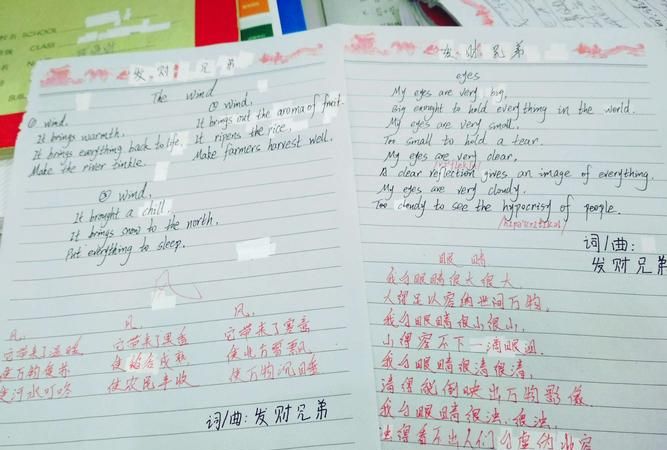 SCHOOL
CLASS
发财兄弟
The Wind
① wind,
It brings warmth,
It brings everything back to life,
Make the river tinkle.
② wind,
It brings out the aroma of fruit.
It ripens the rice,
Make farmers harvest well.
③ wind,
It brought a chill,
It brings snow to the north,
Put everything to sleep.
风
风,
它带来了温暖
使万物复苏
使河水叮咚
风,
它带来了果香
使稻谷成熟
使农民丰收
风,
它带来了寒意
使北方雪飘
使万物沉睡
词/曲:发财兄弟
发财兄弟
eyes
My eyes are very big,
Big enought to hold everything in the world.
My eyes are very small,
Too small to hold a tear.
My eyes are very clear,
A clear reflection gives an image of everything.
My eyes are very cloudy.
Too cloudy to see the hypocrisy of people.
词/曲:
发财兄弟
眼睛
我的眼睛很大很大,
大得足以容纳世间万物,
我的眼睛很小很小,
小得容不下一滴眼泪.
我的眼睛很清很清,
清得能倒映出万物影像.
我的眼睛很浊,很浊,
浊得看不出人们的虚伪